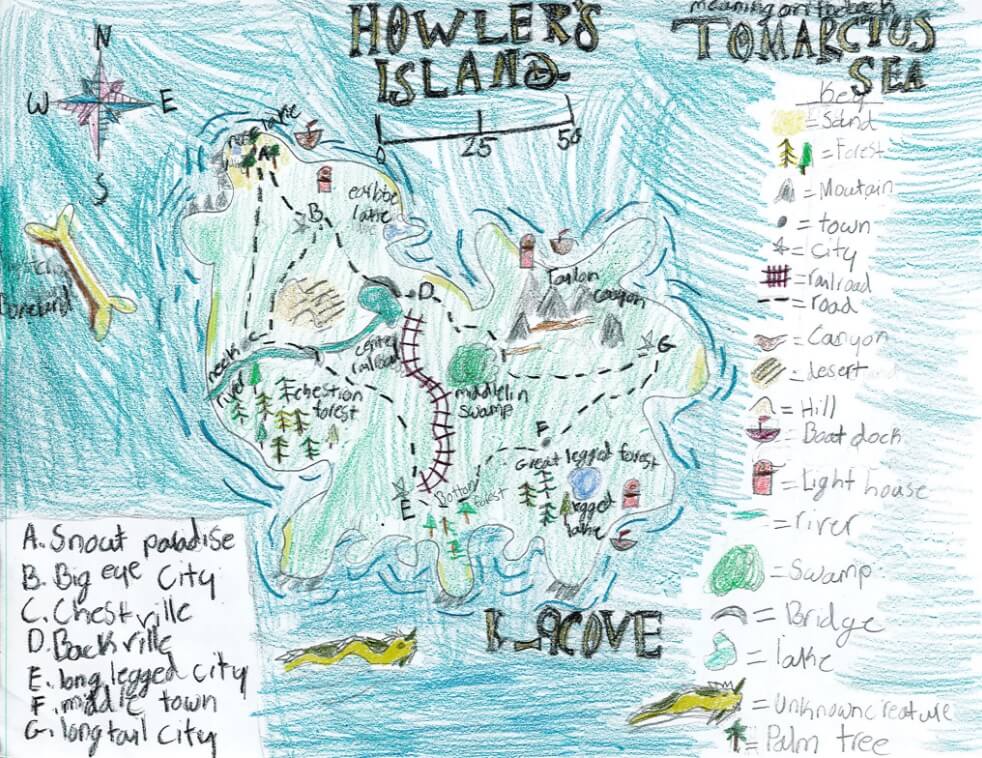 meaning on the back
HOWLER'S
ISLAND
TOMARCTUS
SEA
N
W
E
S
0
25
50
Key
= Sand
= Forest
= Moutain
= town
= City
= railroad
= road
= Canyon
= desert
= Hill
= Boat dock
= Light house
= river
= Swamp
= Bridge
= lake
= Unknown creature
= Palm tree
nose lake
A
B
lake
Tanlon
canyon
D
C
G
neck
river
center
railroad
chestion
forest
middlelin
swamp
F
Great legged forest
legged
lake
E
Bottom
forest
COVE
A. Snout paradise
B. Big eye City
C. Chestville
D. Backville
E. long legged city
F. middle town
G. longtail City